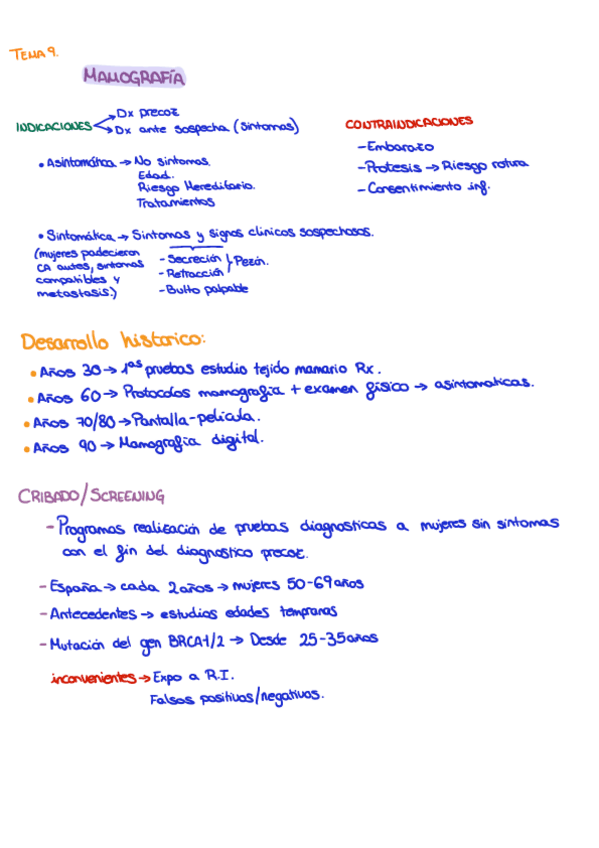 TEMA 9.
MAMOGRAFÍA
INDICACIONES
Dx precoz
Dx ante sospecha (sintomas)
• Asintomática → No sintomas.
Edad.
Riesgo Hereditario.
Tratamientos
• Sintomática → Sintomas y signos clinicos sospechosos.
(mujeres padecieron
CA antes, sintomas
compatibles y
metastasis.)
- Secreción
- Retracción
} Pezón.
- Bulto palpable
CONTRAINDICACIONES
- Embarazo
- Protesis → Riesgo rotura
- Consentimiento inf.
Desarrollo historico:
• Años 30 → 1as pruebas estudio tejido mamario Rx.
• Años 60 → Protocolos mamografia + examen fisico → asintomaticas.
• Años 70/80 → Pantalla-pelicula.
• Años 90 → Mamografia digital.
CRIBADO/SCREENING
- Programas realización de pruebas diagnosticas a mujeres sin sintomas
con el fin del diagnostico precoz.
- España → cada 2 años → mujeres 50-69 años
- Antecedentes → estudios edades tempranas
- Mutación del gen BRCA1/2 → Desde 25-35 años
inconvenientes → Expo a R.I.
Falsos positivos/negativos.